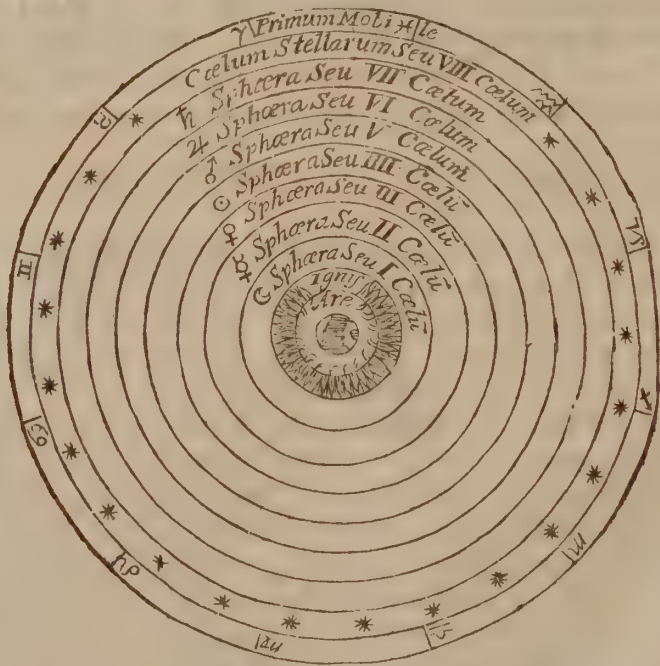 ♈ Primum Mobi ♓ le
Cœlum Stellarum Seu VIII Cœlum
♄ Sphæra Seu VII Cœlum
♃ Sphœra Seu VI Cœlum
♂ Sphœra Seu V Cœlum
☉ Sphæra Seu IIII Cœlū
♀ Sphæra Seu III Cœlū
☿ Sphæra Seu II Cœlū
☾ Sphæra Seu I Cœlū
Ignis
Are
♒
♑
♐
♏
♎
♍
♌
♋
♊
♉